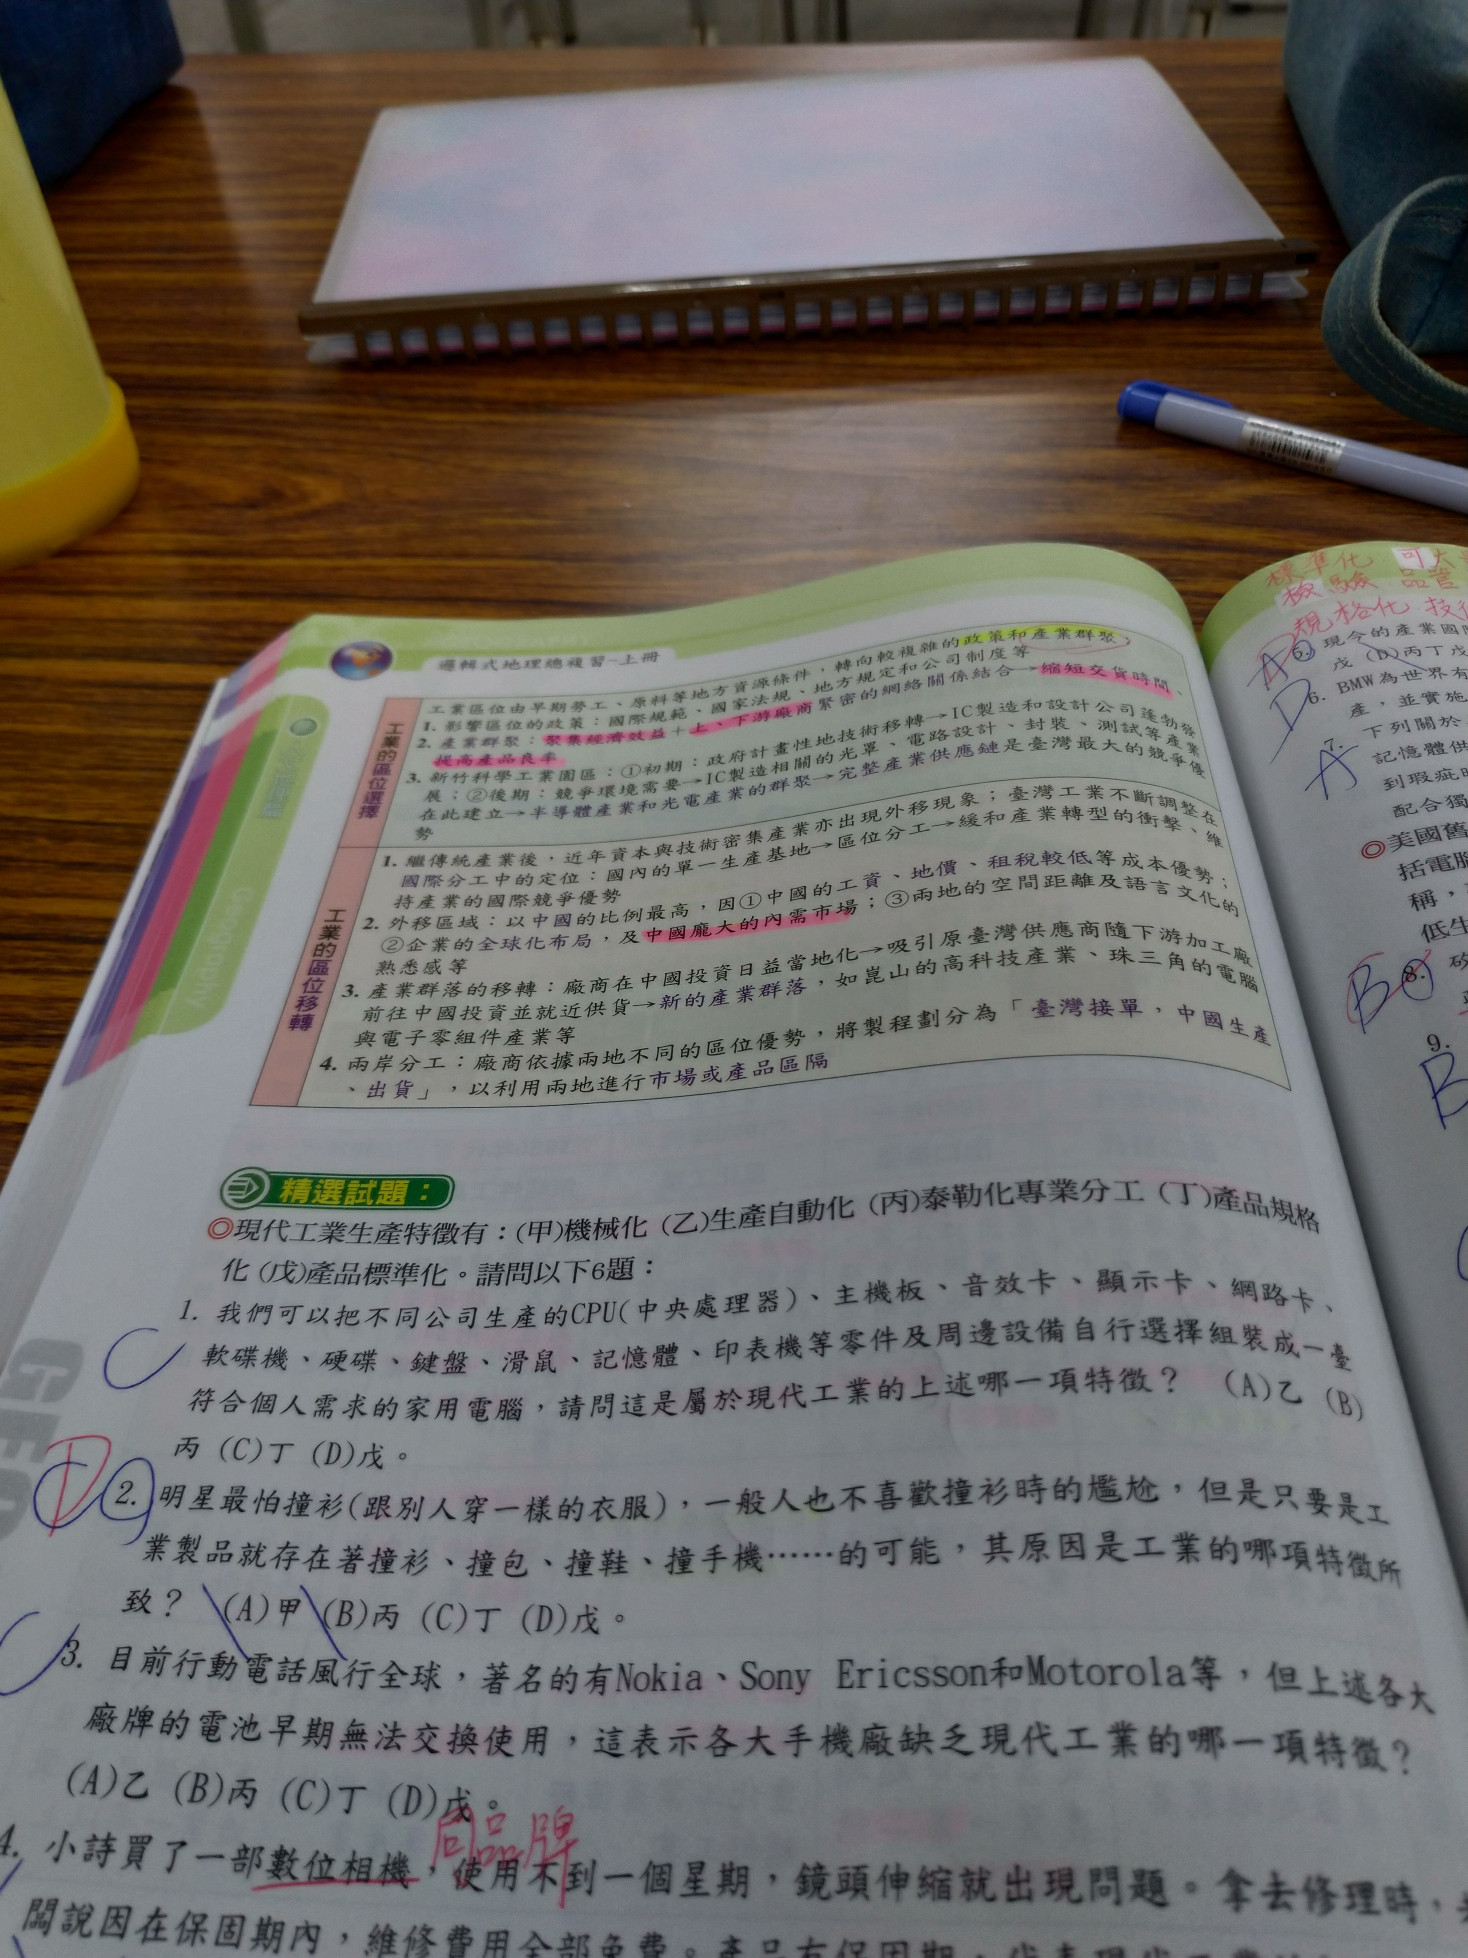 邏輯式地理總複習-上冊
Geography
GEO
工業的區位選擇
工業區位由早期勞工、原料等地方資源條件，轉向較複雜的政策和產業群聚
1. 影響區位的政策：國際規範、國家法規、地方規定和公司制度等
2. 產業群聚：聚集經濟效益＋上、下游廠商緊密的網絡關係結合→縮短交貨時間、
提高產品良率
3. 新竹科學工業園區：①初期：政府計畫性地技術移轉→IC製造和設計公司蓬勃發
展；②後期：競爭環境需要→IC製造相關的光罩、電路設計、封裝、測試等產業
在此建立→半導體產業和光電產業的群聚→完整產業供應鏈是臺灣最大的競爭優
勢
工業的區位移轉
1. 繼傳統產業後，近年資本與技術密集產業亦出現外移現象；臺灣工業不斷調整在
國際分工中的定位：國內的單一生產基地→區位分工→緩和產業轉型的衝擊、維
持產業的國際競爭優勢
2. 外移區域：以中國的比例最高，因①中國的工資、地價、租稅較低等成本優勢；
②企業的全球化布局，及中國龐大的內需市場；③兩地的空間距離及語言文化的
熟悉感等
3. 產業群落的移轉：廠商在中國投資日益當地化→吸引原臺灣供應商隨下游加工廠
前往中國投資並就近供貨→新的產業群落，如崑山的高科技產業、珠三角的電腦
與電子零組件產業等
4. 兩岸分工：廠商依據兩地不同的區位優勢，將製程劃分為「臺灣接單，中國生產
、出貨」，以利用兩地進行市場或產品區隔
精選試題：
◎現代工業生產特徵有：(甲)機械化 (乙)生產自動化 (丙)泰勒化專業分工 (丁)產品規格
化 (戊)產品標準化。請問以下6題：
C 1. 我們可以把不同公司生產的CPU(中央處理器)、主機板、音效卡、顯示卡、網路卡、
軟碟機、硬碟、鍵盤、滑鼠、記憶體、印表機等零件及周邊設備自行選擇組裝成一臺
符合個人需求的家用電腦，請問這是屬於現代工業的上述哪一項特徵？ (A)乙 (B)
丙 (C)丁 (D)戊。
D 2. 明星最怕撞衫(跟別人穿一樣的衣服)，一般人也不喜歡撞衫時的尷尬，但是只要是工
業製品就存在著撞衫、撞包、撞鞋、撞手機……的可能，其原因是工業的哪項特徵所
致？ (A)甲 (B)丙 (C)丁 (D)戊。
C 3. 目前行動電話風行全球，著名的有Nokia、Sony Ericsson和Motorola等，但上述各大
廠牌的電池早期無法交換使用，這表示各大手機廠缺乏現代工業的哪一項特徵？
(A)乙 (B)丙 (C)丁 (D)戊。
同品牌
4. 小詩買了一部數位相機，使用不到一個星期，鏡頭伸縮就出現問題。拿去修理時，
闆說因在保固期內，維修費用全部免費。產品有保固期，代表現代工業
標準化 可大
檢驗 品管
規格化
A 5. 現今的產業國
戊 (D)丙丁戊
D 6. BMW為世界有
產，並實施
下列關於
A 7. 記憶體供
到瑕疵
配合獨
◎美國舊
括電腦
稱，
低生
B 8.
B 9.